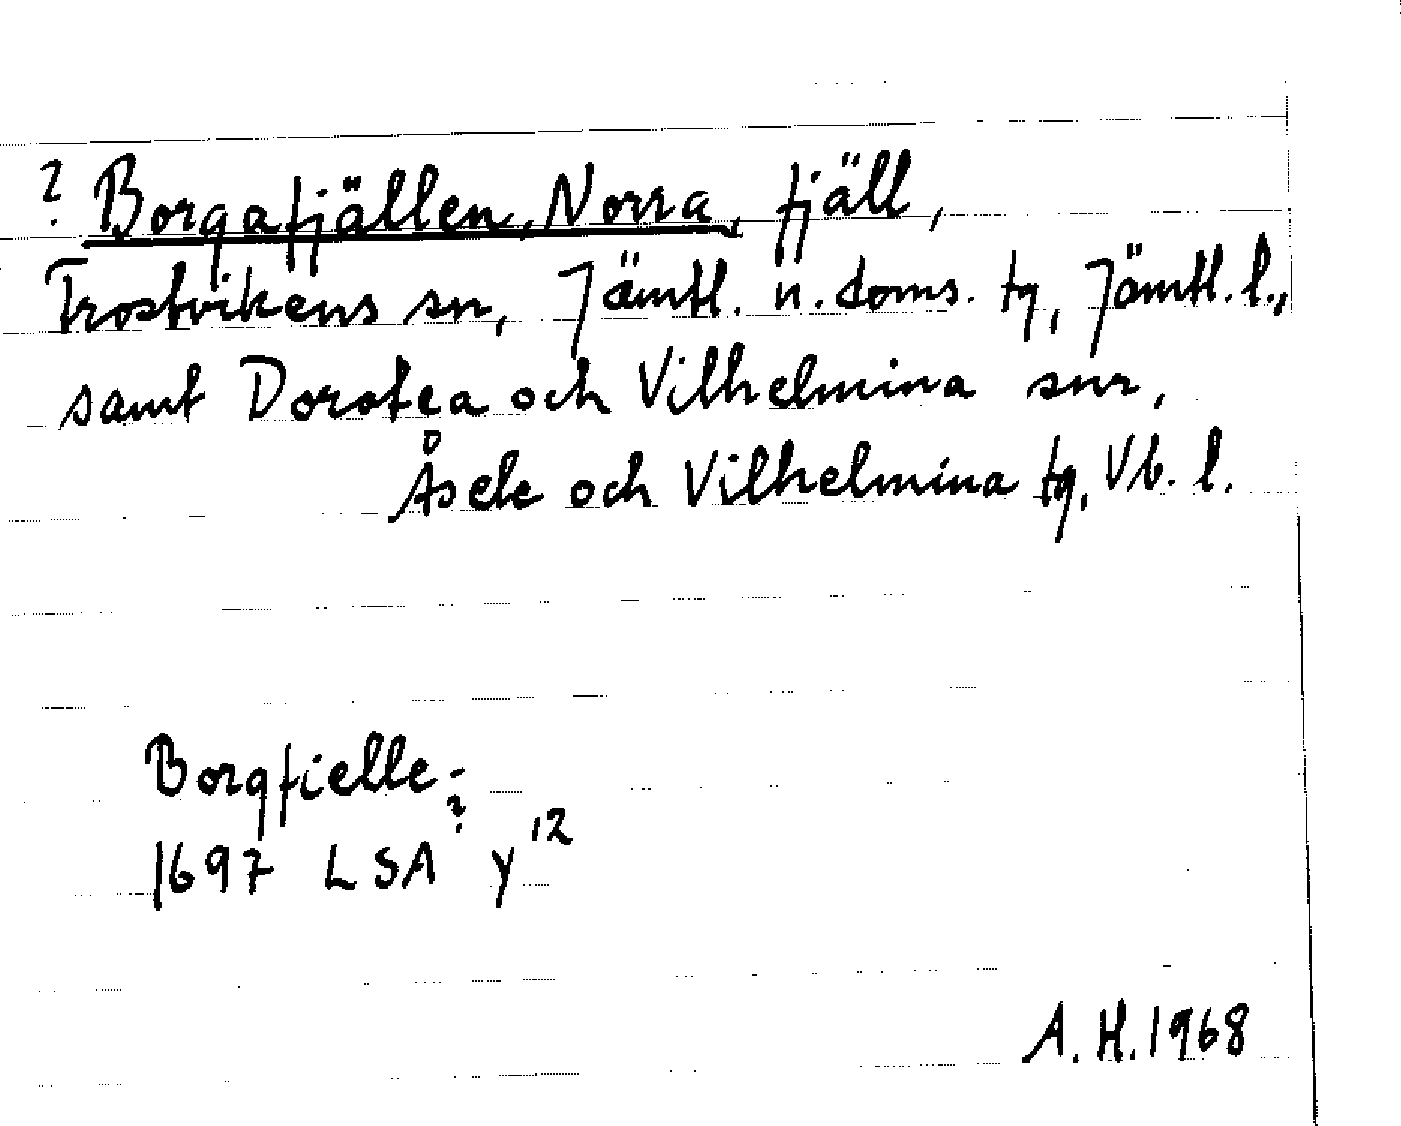 ? Borgafjällen, Norra, fjäll,
Frostvikens sn, Jämtl. n. doms. tg, Jämtl. l.,
samt Dorotea och Vilhelmina snr,
Åsele och Vilhelmina tg, Vb. l.
Borgfielle-?
1697 LSA Y 12
A. H. 1968